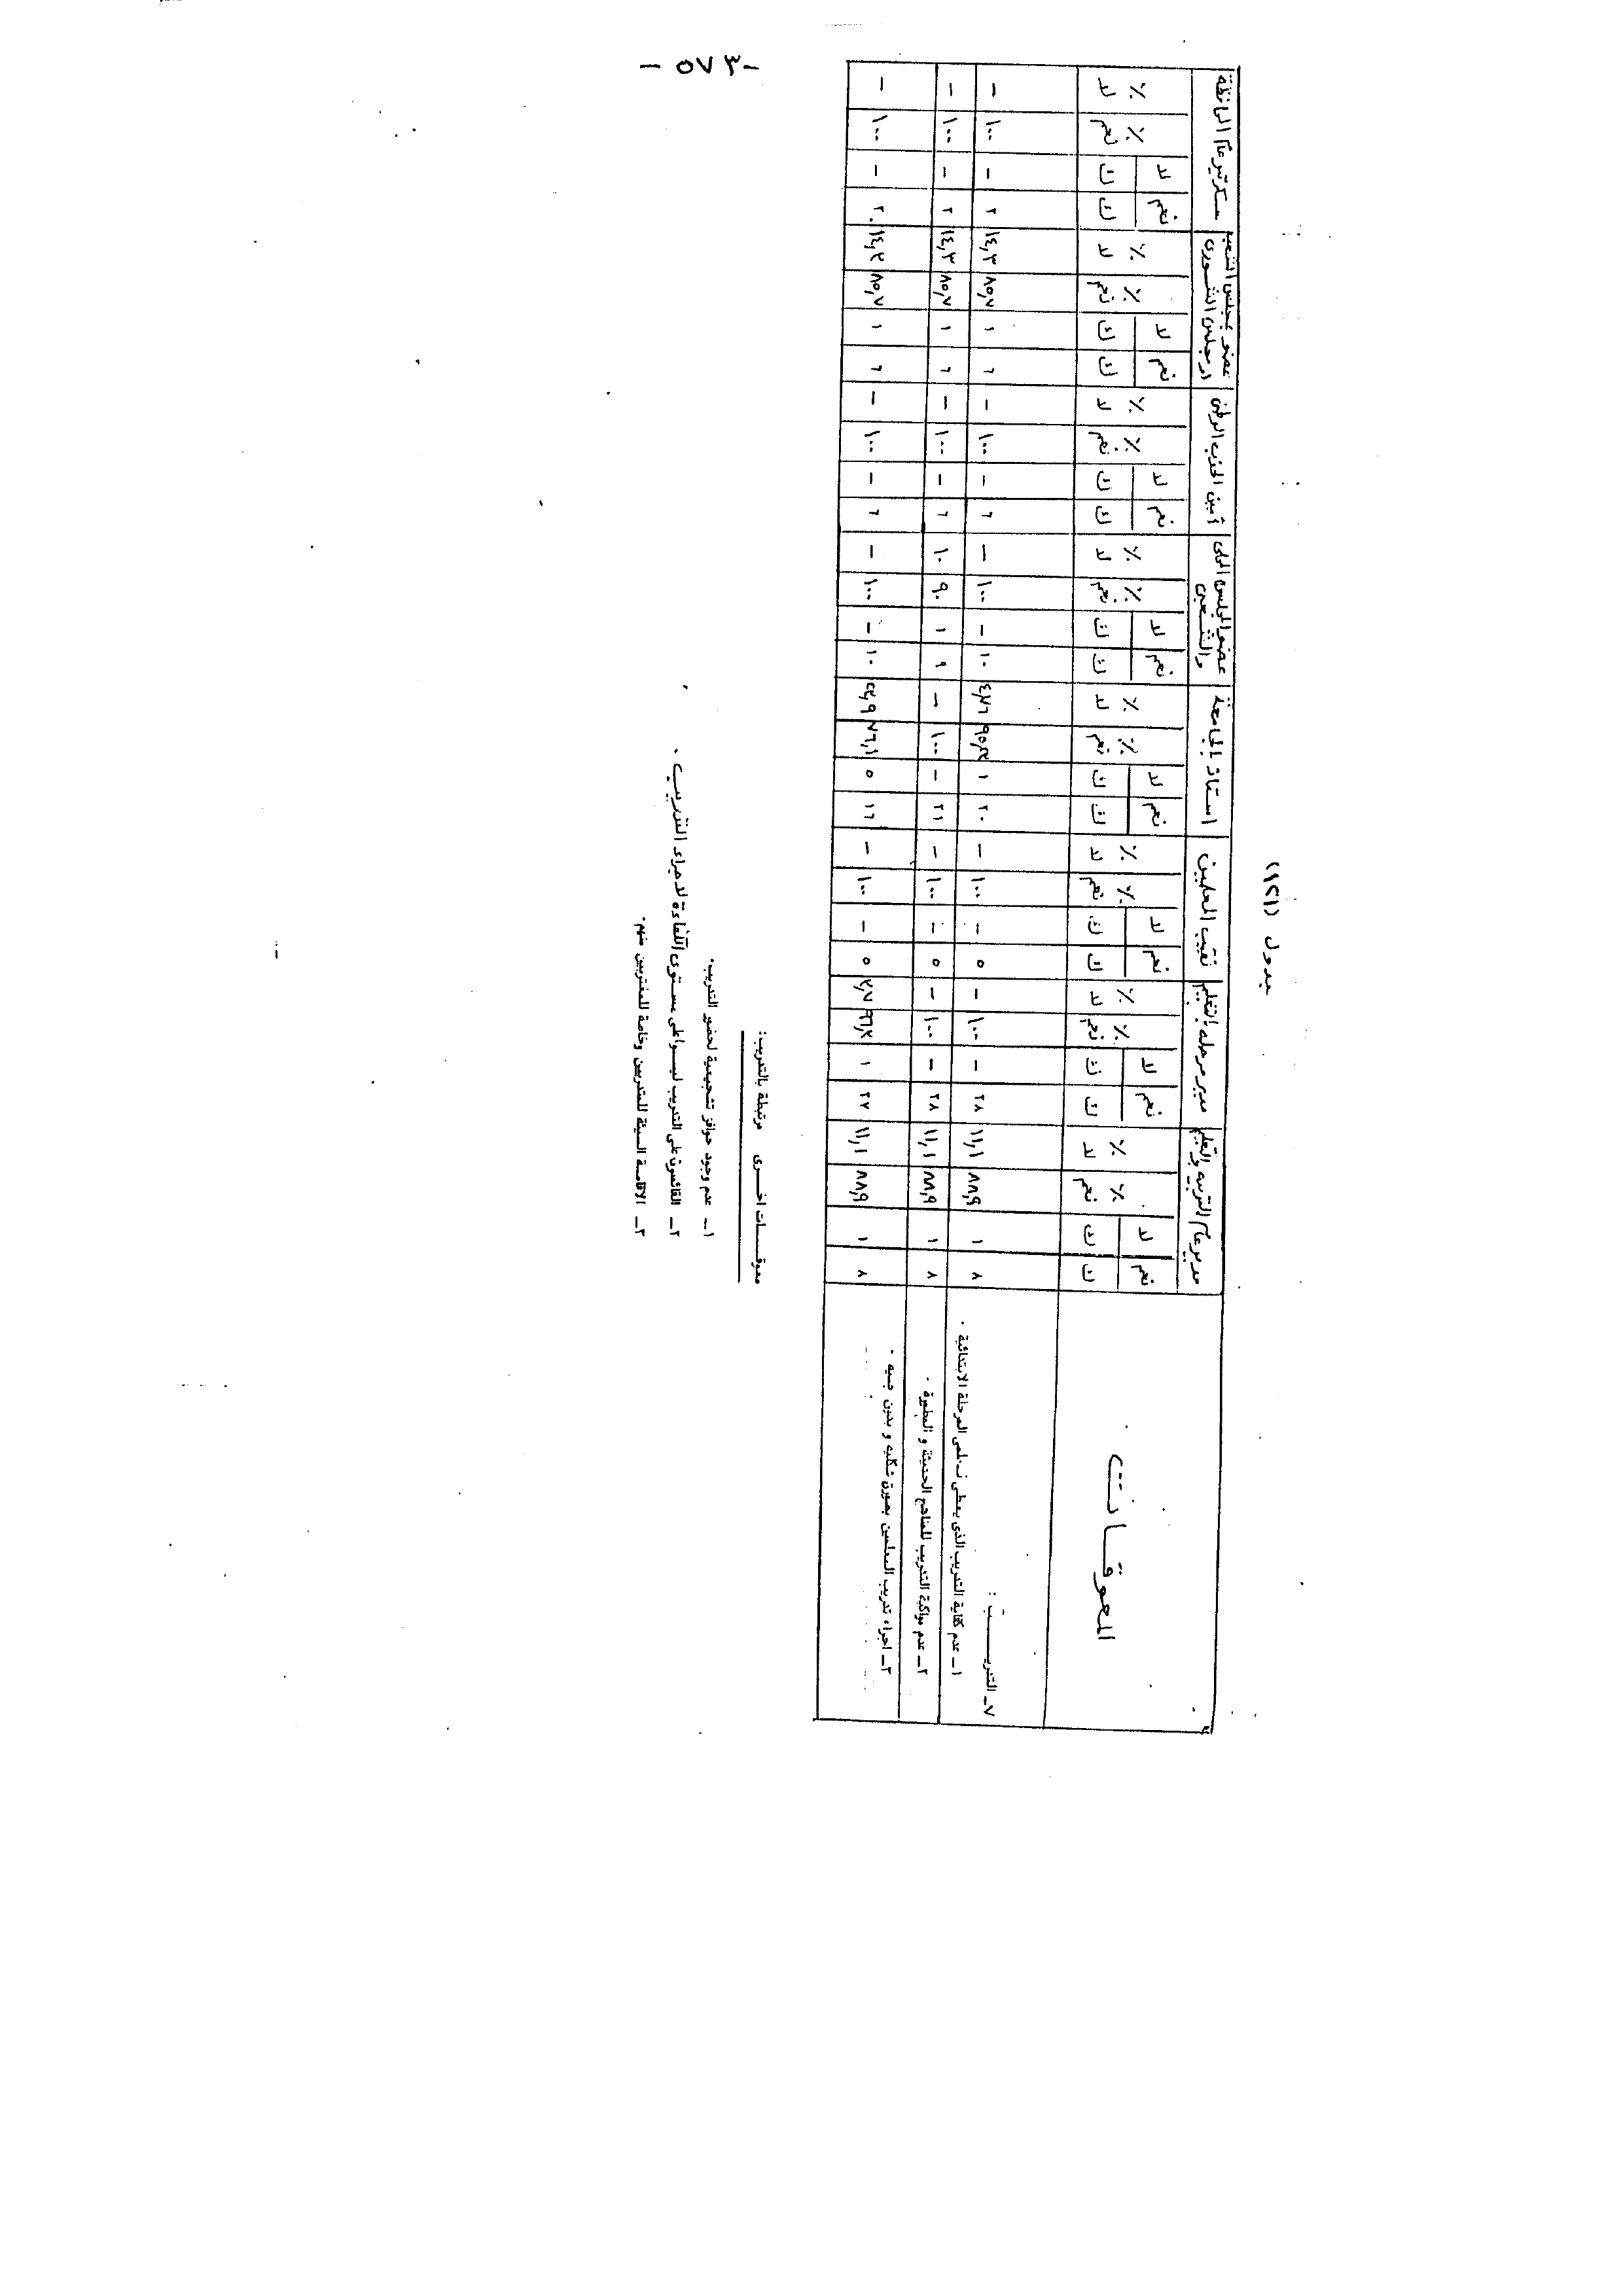 - ٥٧٣ -
جدول (١٢١)
المعوقات | مدير عام التربية والتعليم | مدير مرحلة بالتعليم | نقيب المعلمين | استاذ الجامعة | عضو المجلس المحلى والشعبى | أمين الحزب الوطنى | عضو مجلس الشعب أو مجلس الشورى | سكرتير عام المحافظة
نعم | لا | ٪ نعم | ٪ لا | نعم | لا | ٪ نعم | ٪ لا | نعم | لا | ٪ نعم | ٪ لا | نعم | لا | ٪ نعم | ٪ لا | نعم | لا | ٪ نعم | ٪ لا | نعم | لا | ٪ نعم | ٪ لا | نعم | لا | ٪ نعم | ٪ لا | نعم | لا | ٪ نعم | ٪ لا
ك | ك | ك | ك | ك | ك | ك | ك | ك | ك | ك | ك | ك | ك | ك | ك
٧ـ التدريــــب :
١ـ عدم كفاية التدريب الذى يعطى لمعلمى المرحلة الابتدائية . | ٨ | ١ | ٨٨,٩ | ١١,١ | ٢٨ | - | ١٠٠ | - | ٥ | - | ١٠٠ | - | ٢٠ | ١ | ٩٥,٢ | ٤,٧٦ | ١٠ | - | ١٠٠ | - | ٦ | - | ١٠٠ | - | ٦ | ١ | ٨٥,٧ | ١٤,٣ | ٢ | - | ١٠٠ | -
٢ـ عدم مواكبة التدريب للمناهج الحديثة و المطورة . | ٨ | ١ | ٨٨,٩ | ١١,١ | ٢٨ | - | ١٠٠ | - | ٥ | - | ١٠٠ | - | ٢١ | - | ١٠٠ | - | ٩ | ١ | ٩٠ | ١٠ | ٦ | - | ١٠٠ | - | ٦ | ١ | ٨٥,٧ | ١٤,٣ | ٢ | - | ١٠٠ | -
٣ـ اجراء تدريب المعلمين بصورة شكليه و بدون جديه . | ٨ | ١ | ٨٨,٩ | ١١,١ | ٢٧ | ١ | ٩٦,٢ | ٣,٧ | ٥ | - | ١٠٠ | - | ١٦ | ٥ | ٧٦,١ | ٢٣,٩ | ١٠ | - | ١٠٠ | - | ٦ | - | ١٠٠ | - | ٦ | ١ | ٨٥,٧ | ١٤,٣ | ٢ | - | ١٠٠ | -
معوقـــــات اخــرى مرتبطة بالتدريب:
١ـ عدم وجود حوافز تشجيعية لحضور التدريب.
٢ـ القائمون على التدريب ليسوا على مستوى الكفاءة لاجراء التدريب .
٣ـ الاقامة السيئة للمتدربين وخاصة للمغتربين منهم.